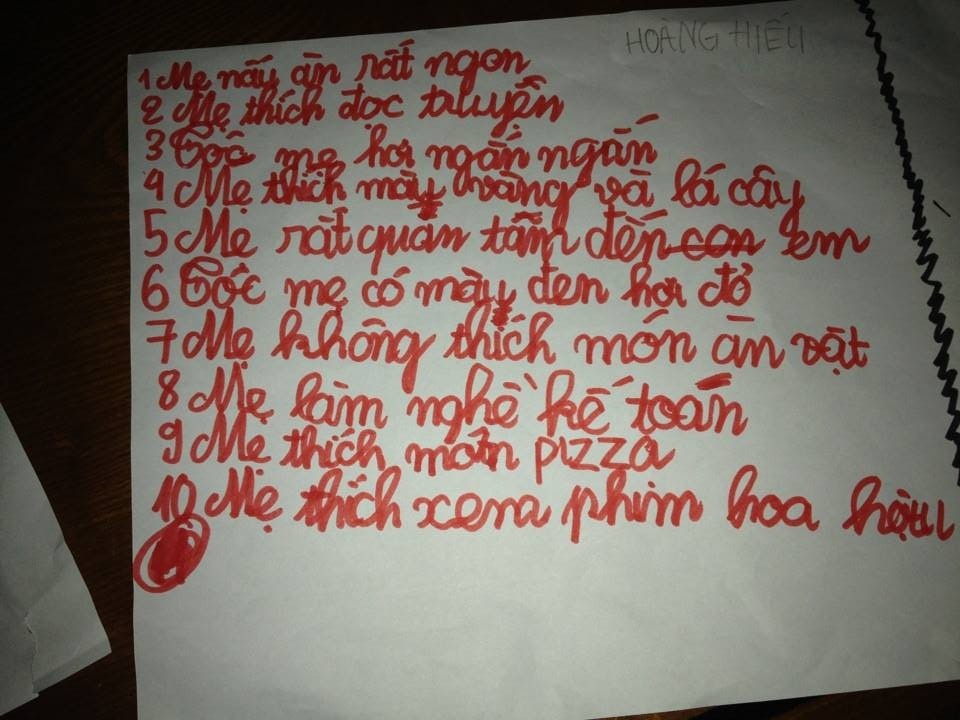 HOÀNG HIẾU
1 Mẹ nấu ăn rất ngon
2 Mẹ thích đọc truyện
3 Tóc mẹ hơi ngắn ngắn
4 Mẹ thích màu vàng và lá cây
5 Mẹ rất quan tâm đến con em
6 Tóc mẹ có màu đen hơi đỏ
7 Mẹ không thích món ăn vặt
8 Mẹ làm nghề kế toán
9 Mẹ thích món pizza
10 Mẹ thích xem phim hoa hậu